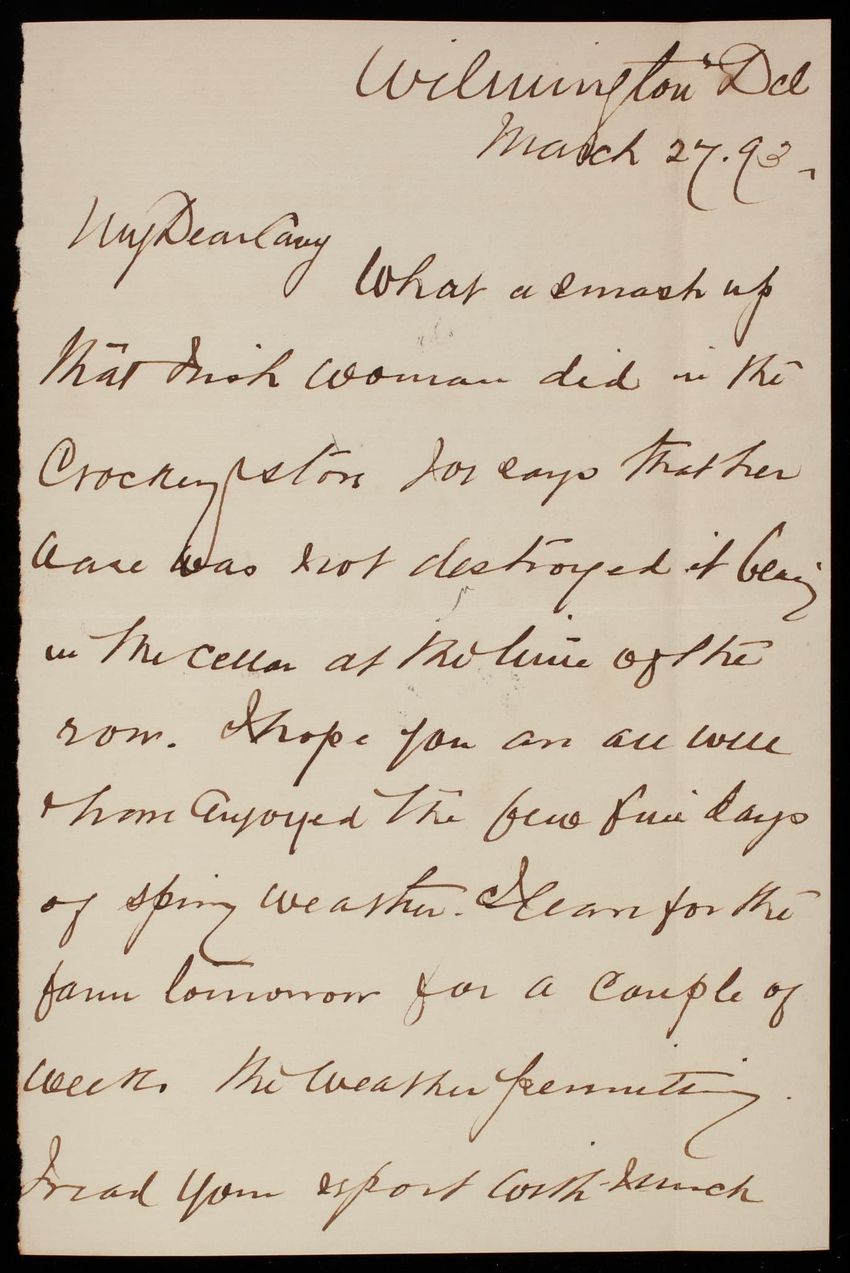 Wilmington Del
March 27. 93.
My Dear Casey
What a smash up
that Irish woman did in the
Crockery store Joe says that her
vase was not destroyed it being
in the cellar at the time of the
row. I hope you are all well
& have enjoyed the few fine days
of spring weather. I leave for the
farm tomorrow for a couple of
weeks the weather permitting.
I read your report with much